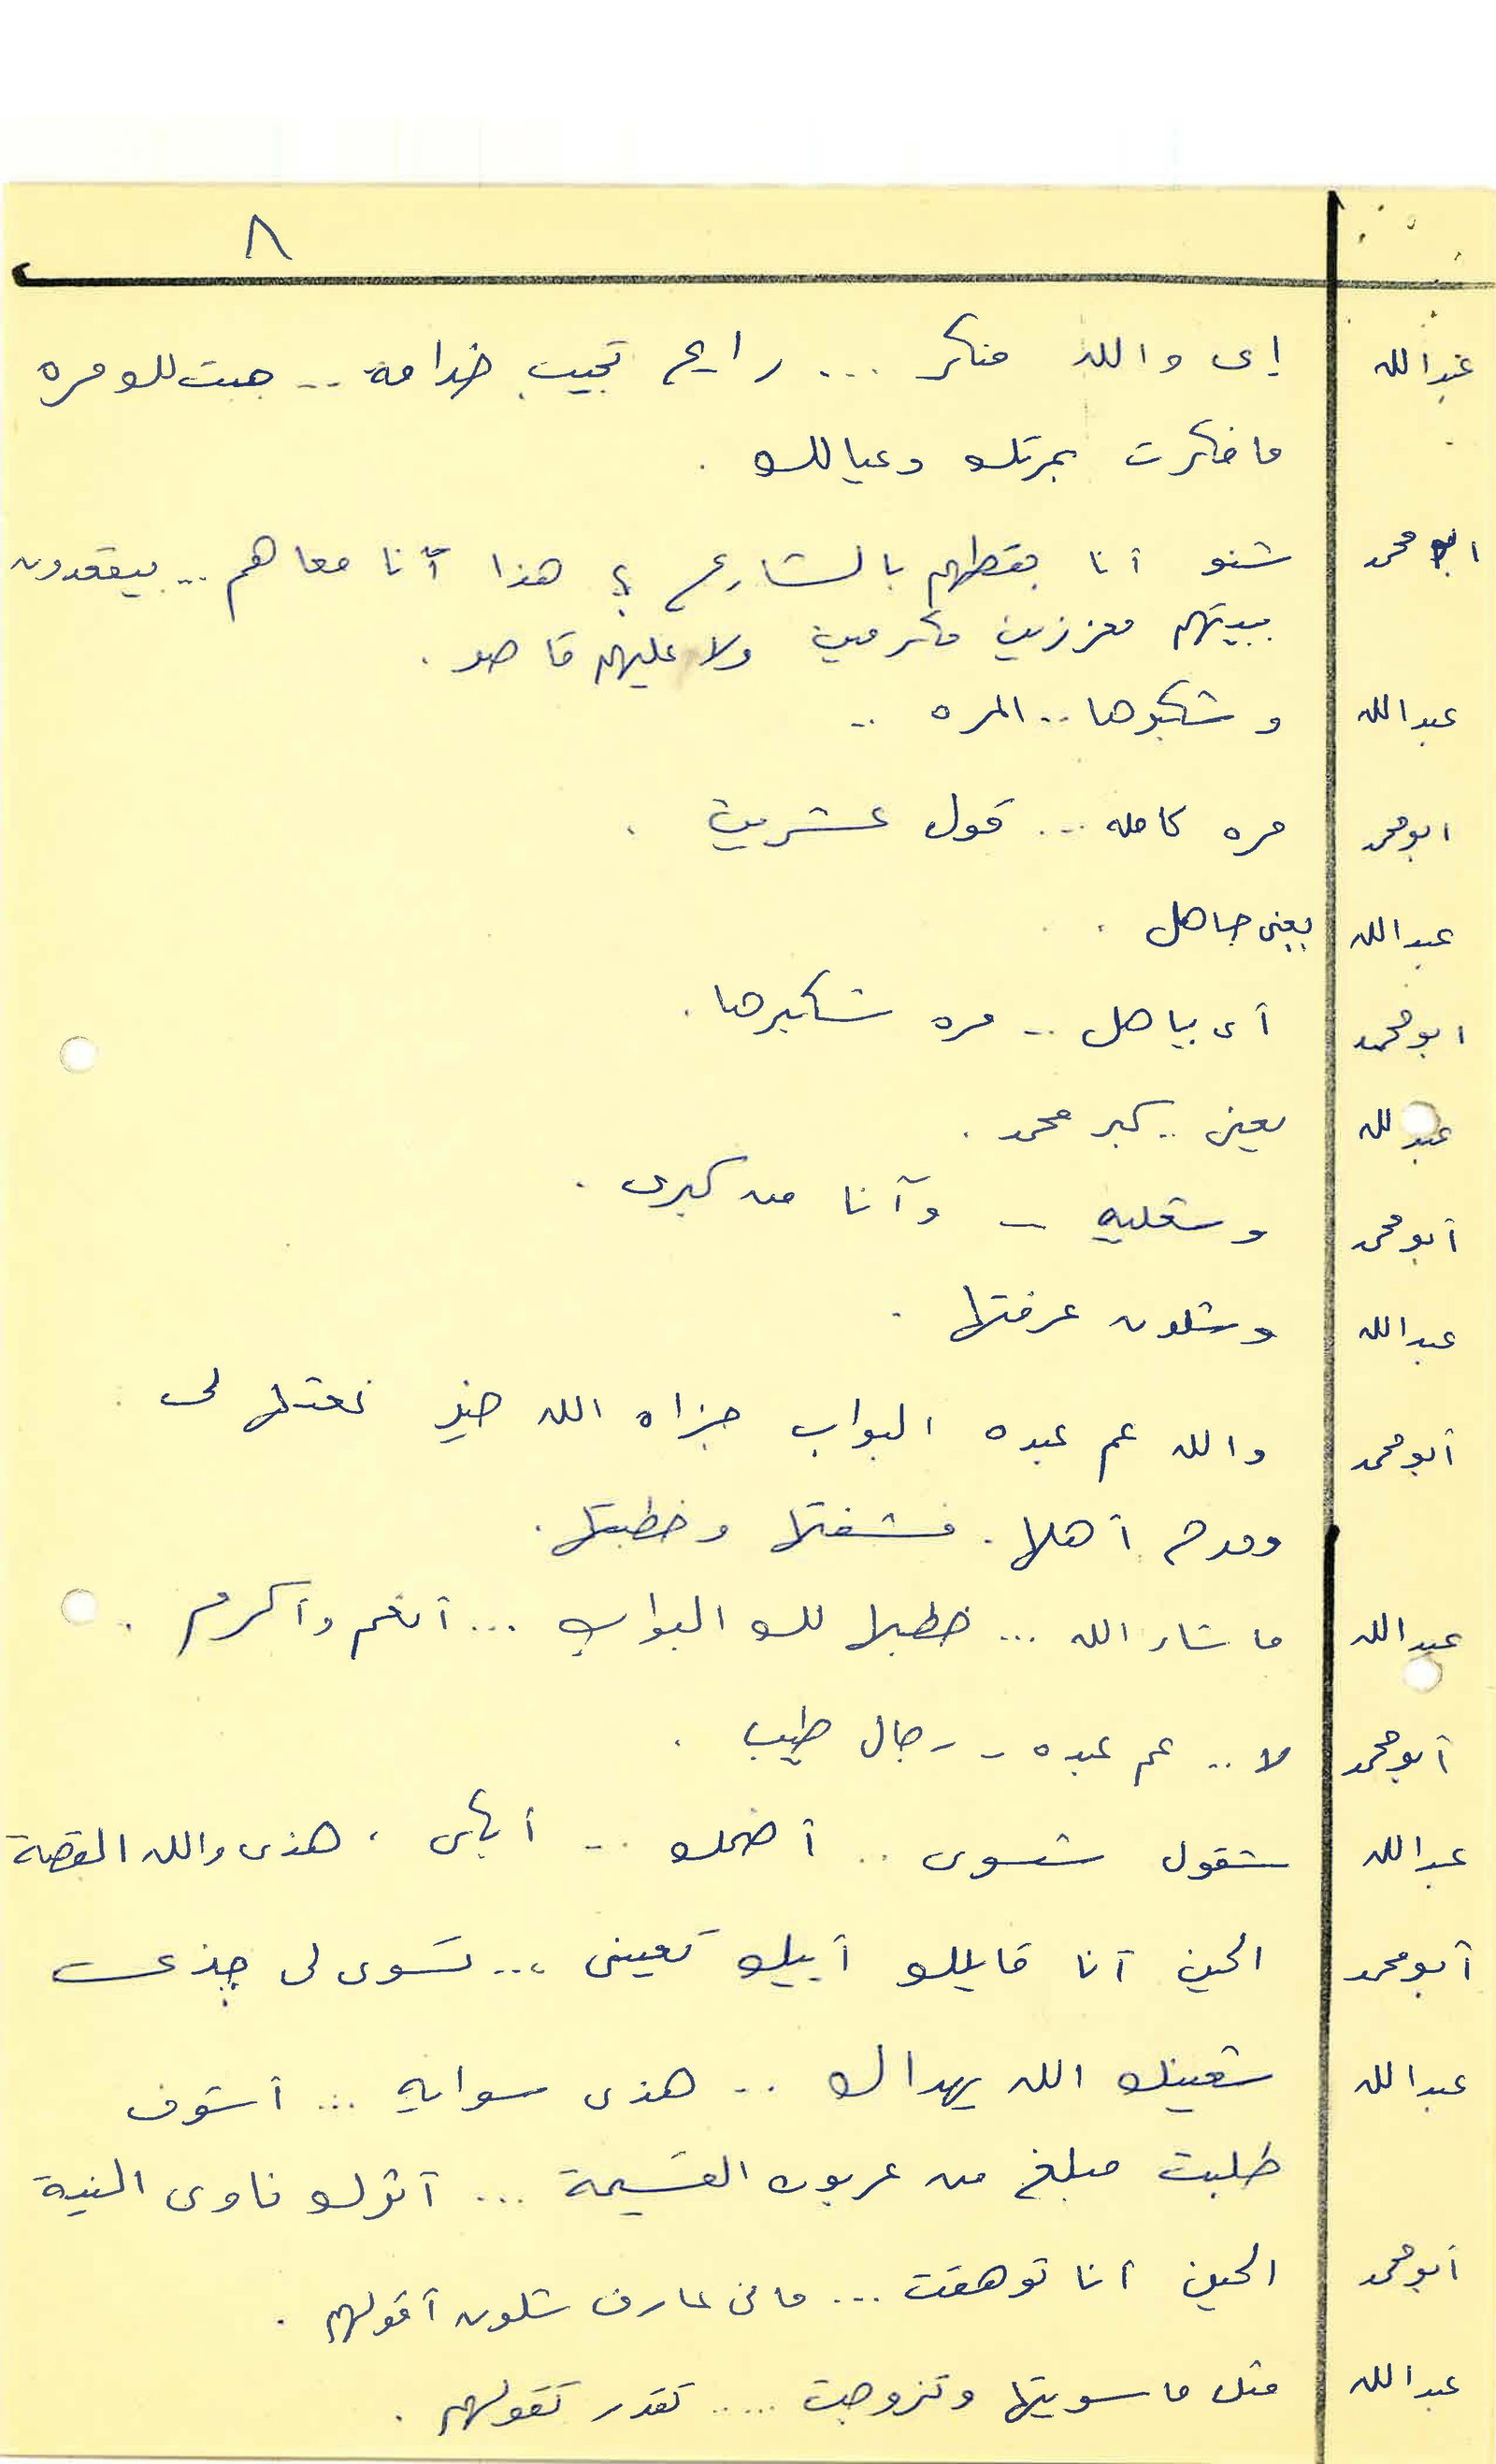 ٨
عبدالله إى والله منكر ... رايح تجيب خدامة .. جبت لك مره
ما فكرت بمرتك وعيالك .
ابو محمد شنو أنا بقطهم بالشارع ؟ هذا أنا معاهم .. بيقعدون
ببيتهم معززين مكرمين ولا عليهم قاصر .
عبدالله وشكبرها .. المره ..
ابو محمد مره كامله ... قول عشرين .
عبدالله يعنى جاهل .
ابو محمد أى ياهل .. مره شكبرها .
عبدالله يعنى .. كبر محمد .
أبو محمد وشعليه - وآنا من كبرى .
عبدالله وشلون عرفتها .
أبو محمد والله عم عبده البواب جزاه الله خير نعتها لى .
ومدح أهلها . فشفتها وخطبتها .
عبدالله ما شاء الله ... خطبها لك البواب ... أنعم وأكرم .
أبو محمد لا .. عم عبده .. رجال طيب .
عبدالله شقول شسوى .. أضحك .. أبكى ، هذى والله القصة
أبو محمد الحين آنا قايلك أبيك تعينى ... تسوى لى چذى
عبدالله شعينك الله يهداك .. هذى سوايه ... أشوف
طلبت مبلغ من عربون القسيمة ... أثرك ناوى النية
أبو محمد الحين أنا توهقت ... مانى عارف شلون أقولهم .
عبدالله مثل ما سويتها وتزوجت ..... تقدر تقولهم .